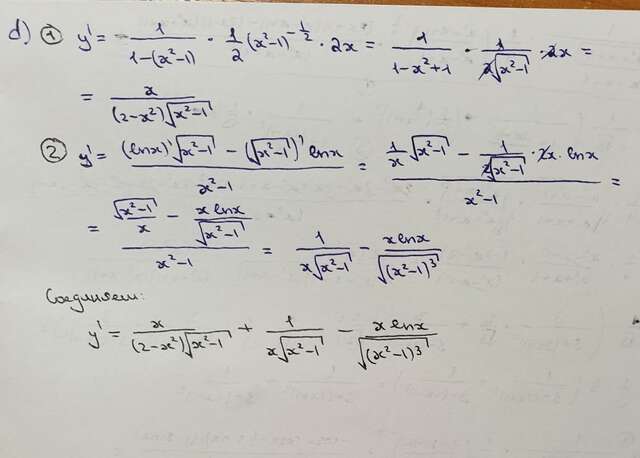 d) ① y' = 1/(1-(x²-1)) · 1/2 (x²-1)^(-1/2) · 2x = 1/(1-x²+1) · 1/(2√(x²-1)) · 2x =
= x/((2-x²)√(x²-1))
② y' = ((lnx)'√(x²-1) - (√(x²-1))' lnx)/(x²-1) = (1/x √(x²-1) - 1/(2√(x²-1)) · 2x · lnx)/(x²-1) =
= (√(x²-1)/x - x lnx/√(x²-1))/(x²-1) = 1/(x√(x²-1)) - x lnx/√((x²-1)³)
Соединяем:
y' = x/((2-x²)√(x²-1)) + 1/(x√(x²-1)) - x lnx/√((x²-1)³)